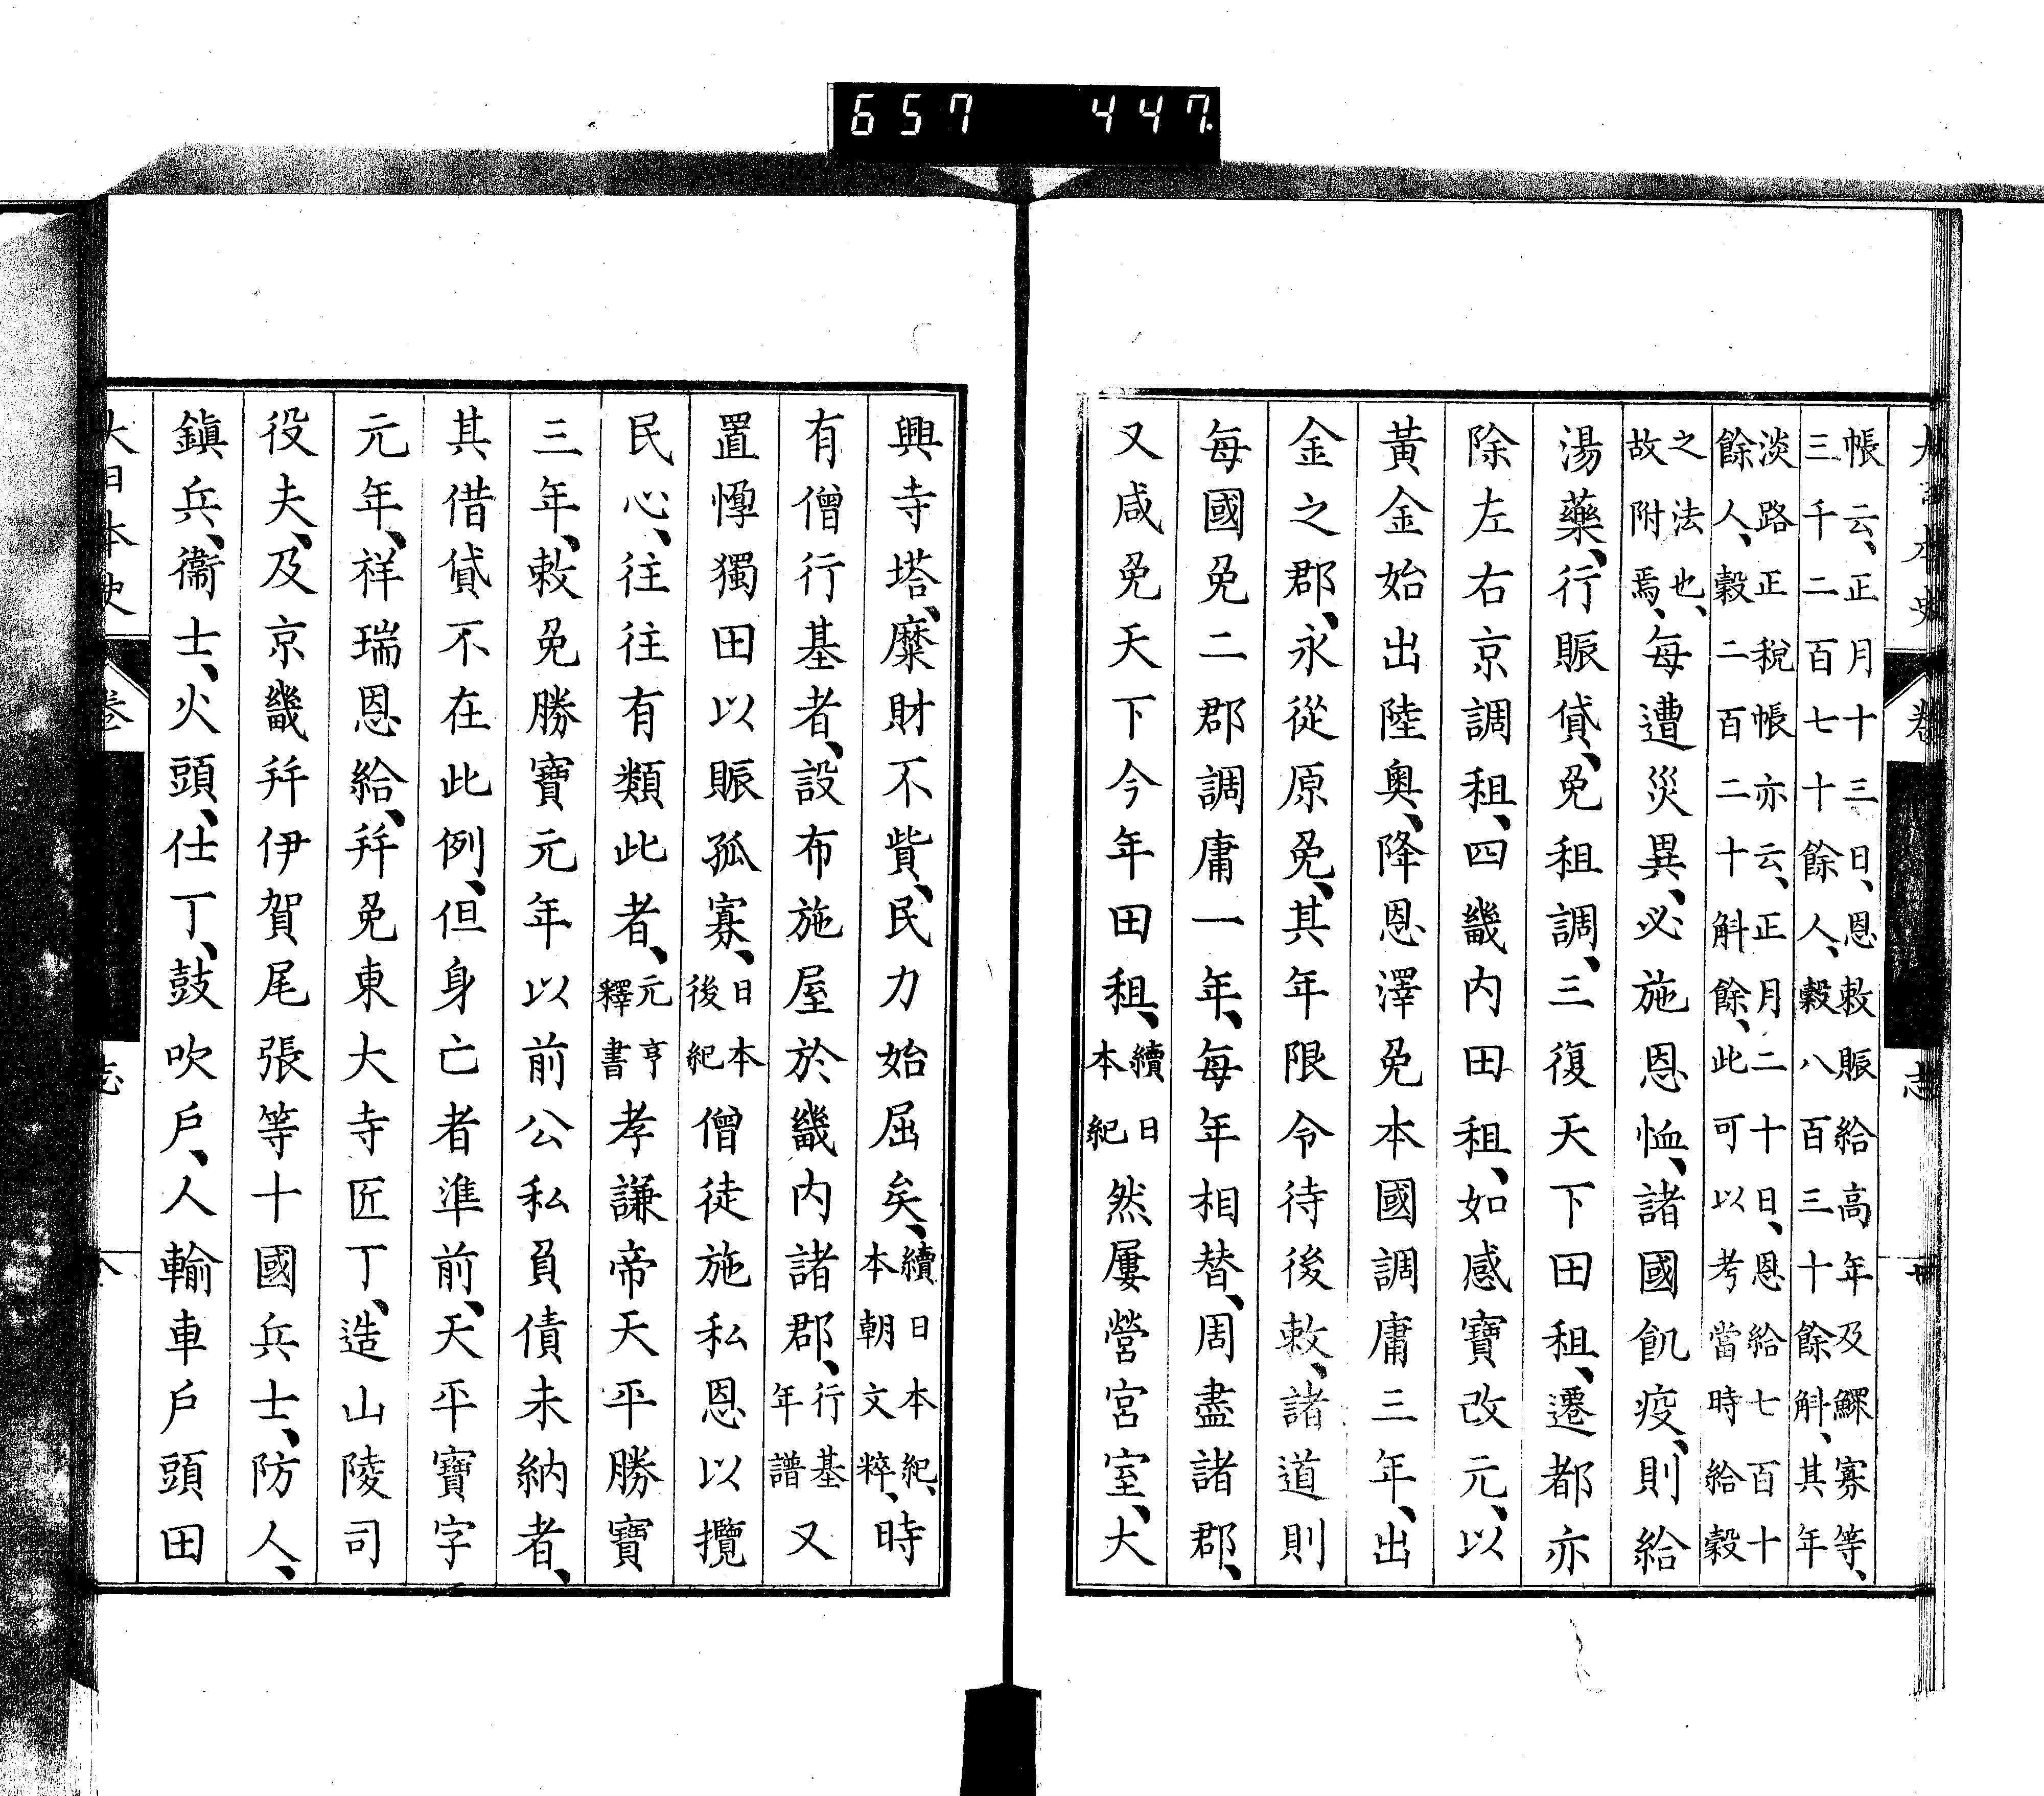 657 447.
帳云、正月十三日、恩敕賑給高年及鰥寡等、
三千二百七十餘人、穀八百三十餘斛、其年
淡路正税帳亦云、正月二十日、恩給七百十
餘人、穀二百二十斛餘、此可以考當時給穀
之法也、
故附焉、每遭災異、必施恩恤、諸國飢疫、則給
湯藥、行賑貸、免租調、三復天下田租、遷都亦
除左右京調租、四畿内田租、如感寶改元、以
黃金始出陸奧、降恩澤免本國調庸三年、出
金之郡、永從原免、其年限令待後敕、諸道則
每國免二郡調庸一年、每年相替、周盡諸郡、
又咸免天下今年田租、續日本紀然屢營宮室、大
興寺塔、糜財不貲、民力始屈矣、續日本紀、本朝文粹、時
有僧行基者、設布施屋於畿内諸郡、行基年譜又
置惸獨田以賑孤寡、日本後紀僧徒施私恩以攬
民心、往往有類此者、元亨釋書孝謙帝天平勝寶
三年、敕免勝寶元年以前公私負債未納者、
其借貸不在此例、但身亡者準前、天平寶字
元年、祥瑞恩給、幷免東大寺匠丁、造山陵司
役夫、及京畿幷伊賀尾張等十國兵士、防人、
鎭兵、衞士、火頭、仕丁、鼓吹戶、人輸車戶頭田
大日本史 卷 志